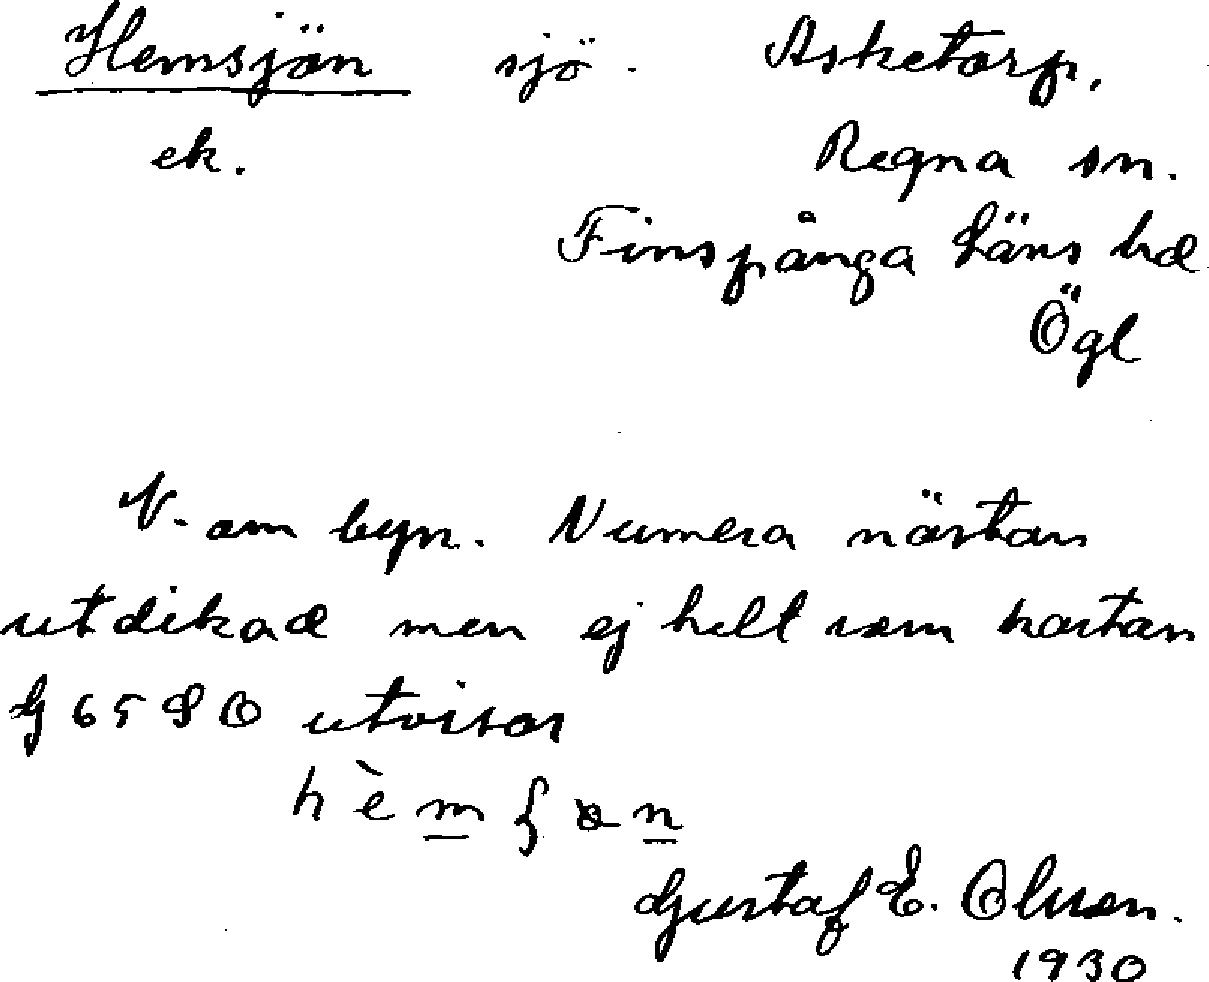 Hemsjön sjö. Asketorp,
ek. Regna sn.
Finspånga läns hd
Ögl
V. om byn. Numera nästan
utdikad men ej helt som kartan
G 65 SO utvisar
Gustaf E. Olsson.
1930